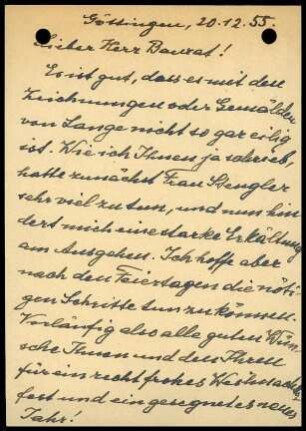 Göttingen, 20.12.55.
Lieber Herr Baurat!
Es ist gut, dass es mit den
Zeichnungen oder Gemälden
von Lange nicht so gar eilig
ist. Wie ich Ihnen ja schrieb,
hatte zunächst Frau Stengler
sehr viel zu tun, und nun hin
dert mich eine starke Erkältung
am Ausgehen. Ich hoffe aber
nach den Feiertagen die nöti
gen Schritte tun zu können.
Vorläufig also alle guten Wün
sche Ihnen und den Ihren
für ein recht frohes Weihnachts
fest und ein gesegnetes neues
Jahr!